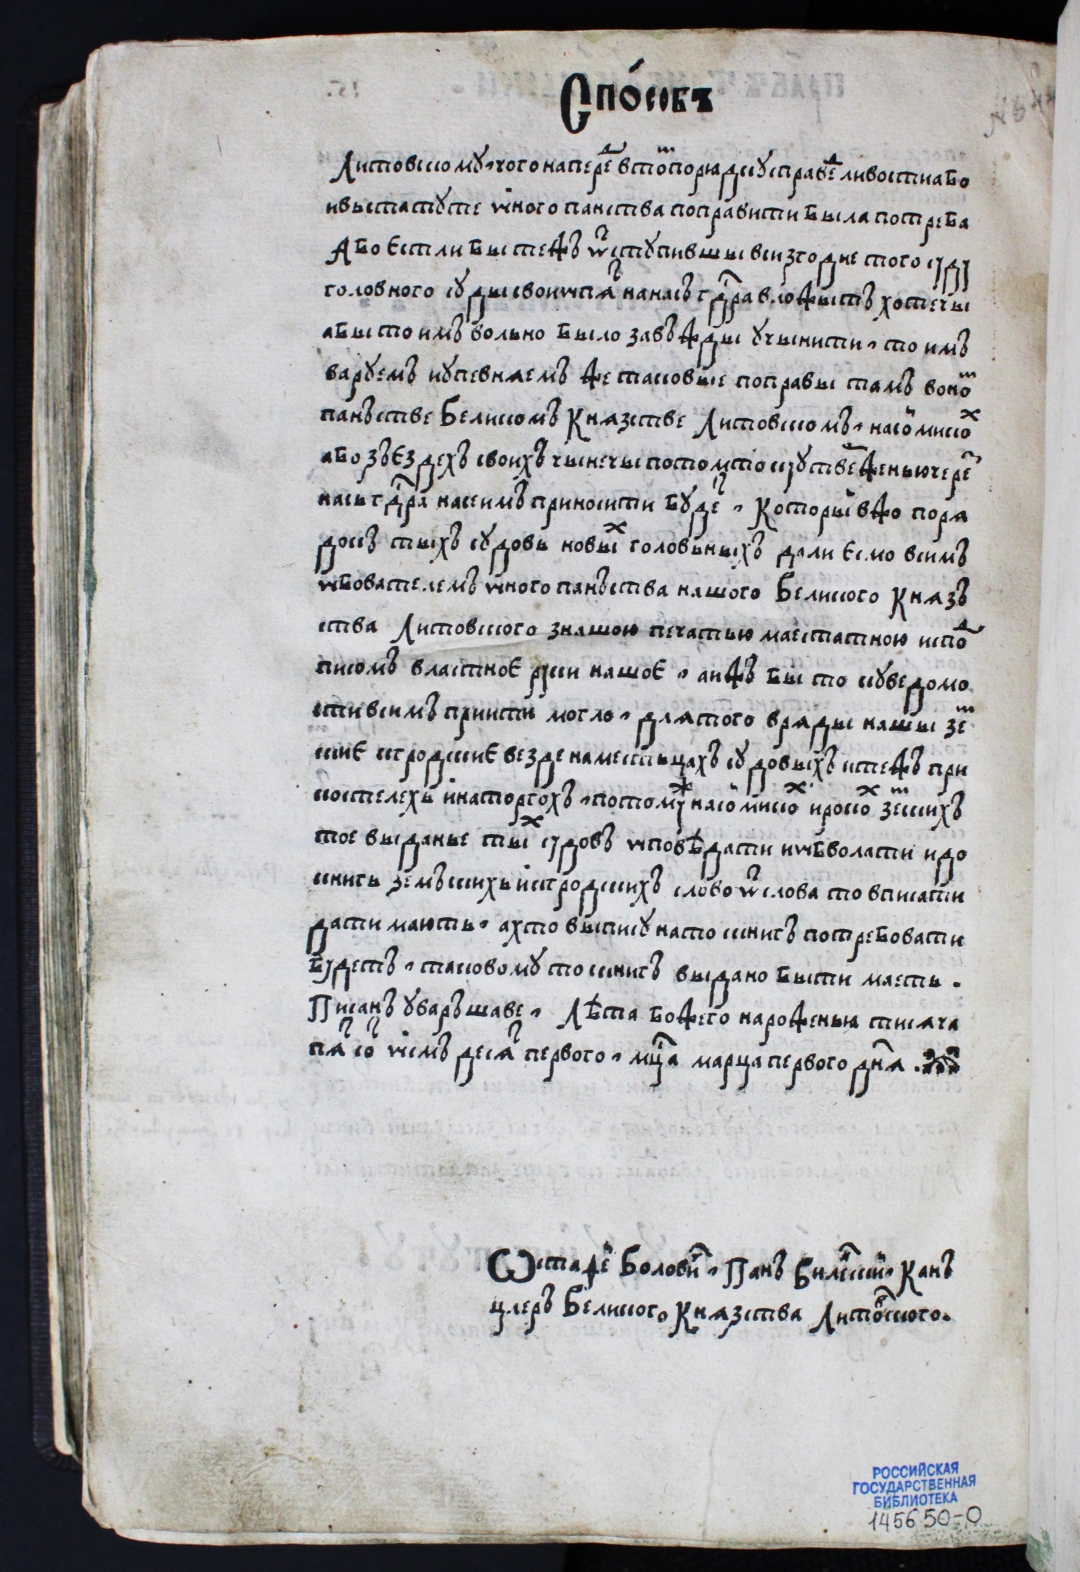 Спо́собъ
Литовскому, чого наперед в то порядку справедливости або
и в статуте ѡного панства поправити была потреба
Або Єстли бы тежъ ѿступившы вси згодне того суду
головного суды свои ѡпят на насъ гдра вложытъ хотечы
абы то имъ вольно было завъжды учынити, то имъ
варуемъ иупевняемъ же таковые поправы тамъ воном
панъстве Великомъ Князстве Литовскомъ, на соймиках
або зъЄздехъ своихъ чынечы потомъ то к утверженью через
насъ гдра насеимъ приносити будет, Которыйжо поря
докъ тыхъ судовъ новых головъныхъ дали Єсмо всимъ
ѡбователемъ ѡного панъства нашого Великого Княз
ства Литовского знашою печатью маестатною испод
писомъ властноЄ руки нашоЄ, аижъ бы то куведомо
сти всимъ прийти могло, для того вряды нашы зем
скиЄ игродскиЄ везде намесцахъ судовыхъ итежъ при
костелехъ инаторгохъ, потомуж насоймиках ироках земскихъ
тое выданье тых судовъ ѡповѣдати иѡбволати идо
книгъ земъскихъ игродскихъ слово ѿ слова то вписати
дати мають, ахто выпису на то скнигъ потребовати
будетъ, таковому то скнигъ выдано быти маеть.
Писанъ уваръшаве, Лѣта божего нароженья тисяча
пятсот ѡсмъдесят первого, мца марца первого дня.
Ѡстафей Воловичъ, Панъ Виленский, Канъ
цлеръ Великого Князства Литовского.
РОССИЙСКАЯ
ГОСУДАРСТВЕННАЯ
БИБЛИОТЕКА
145650-О